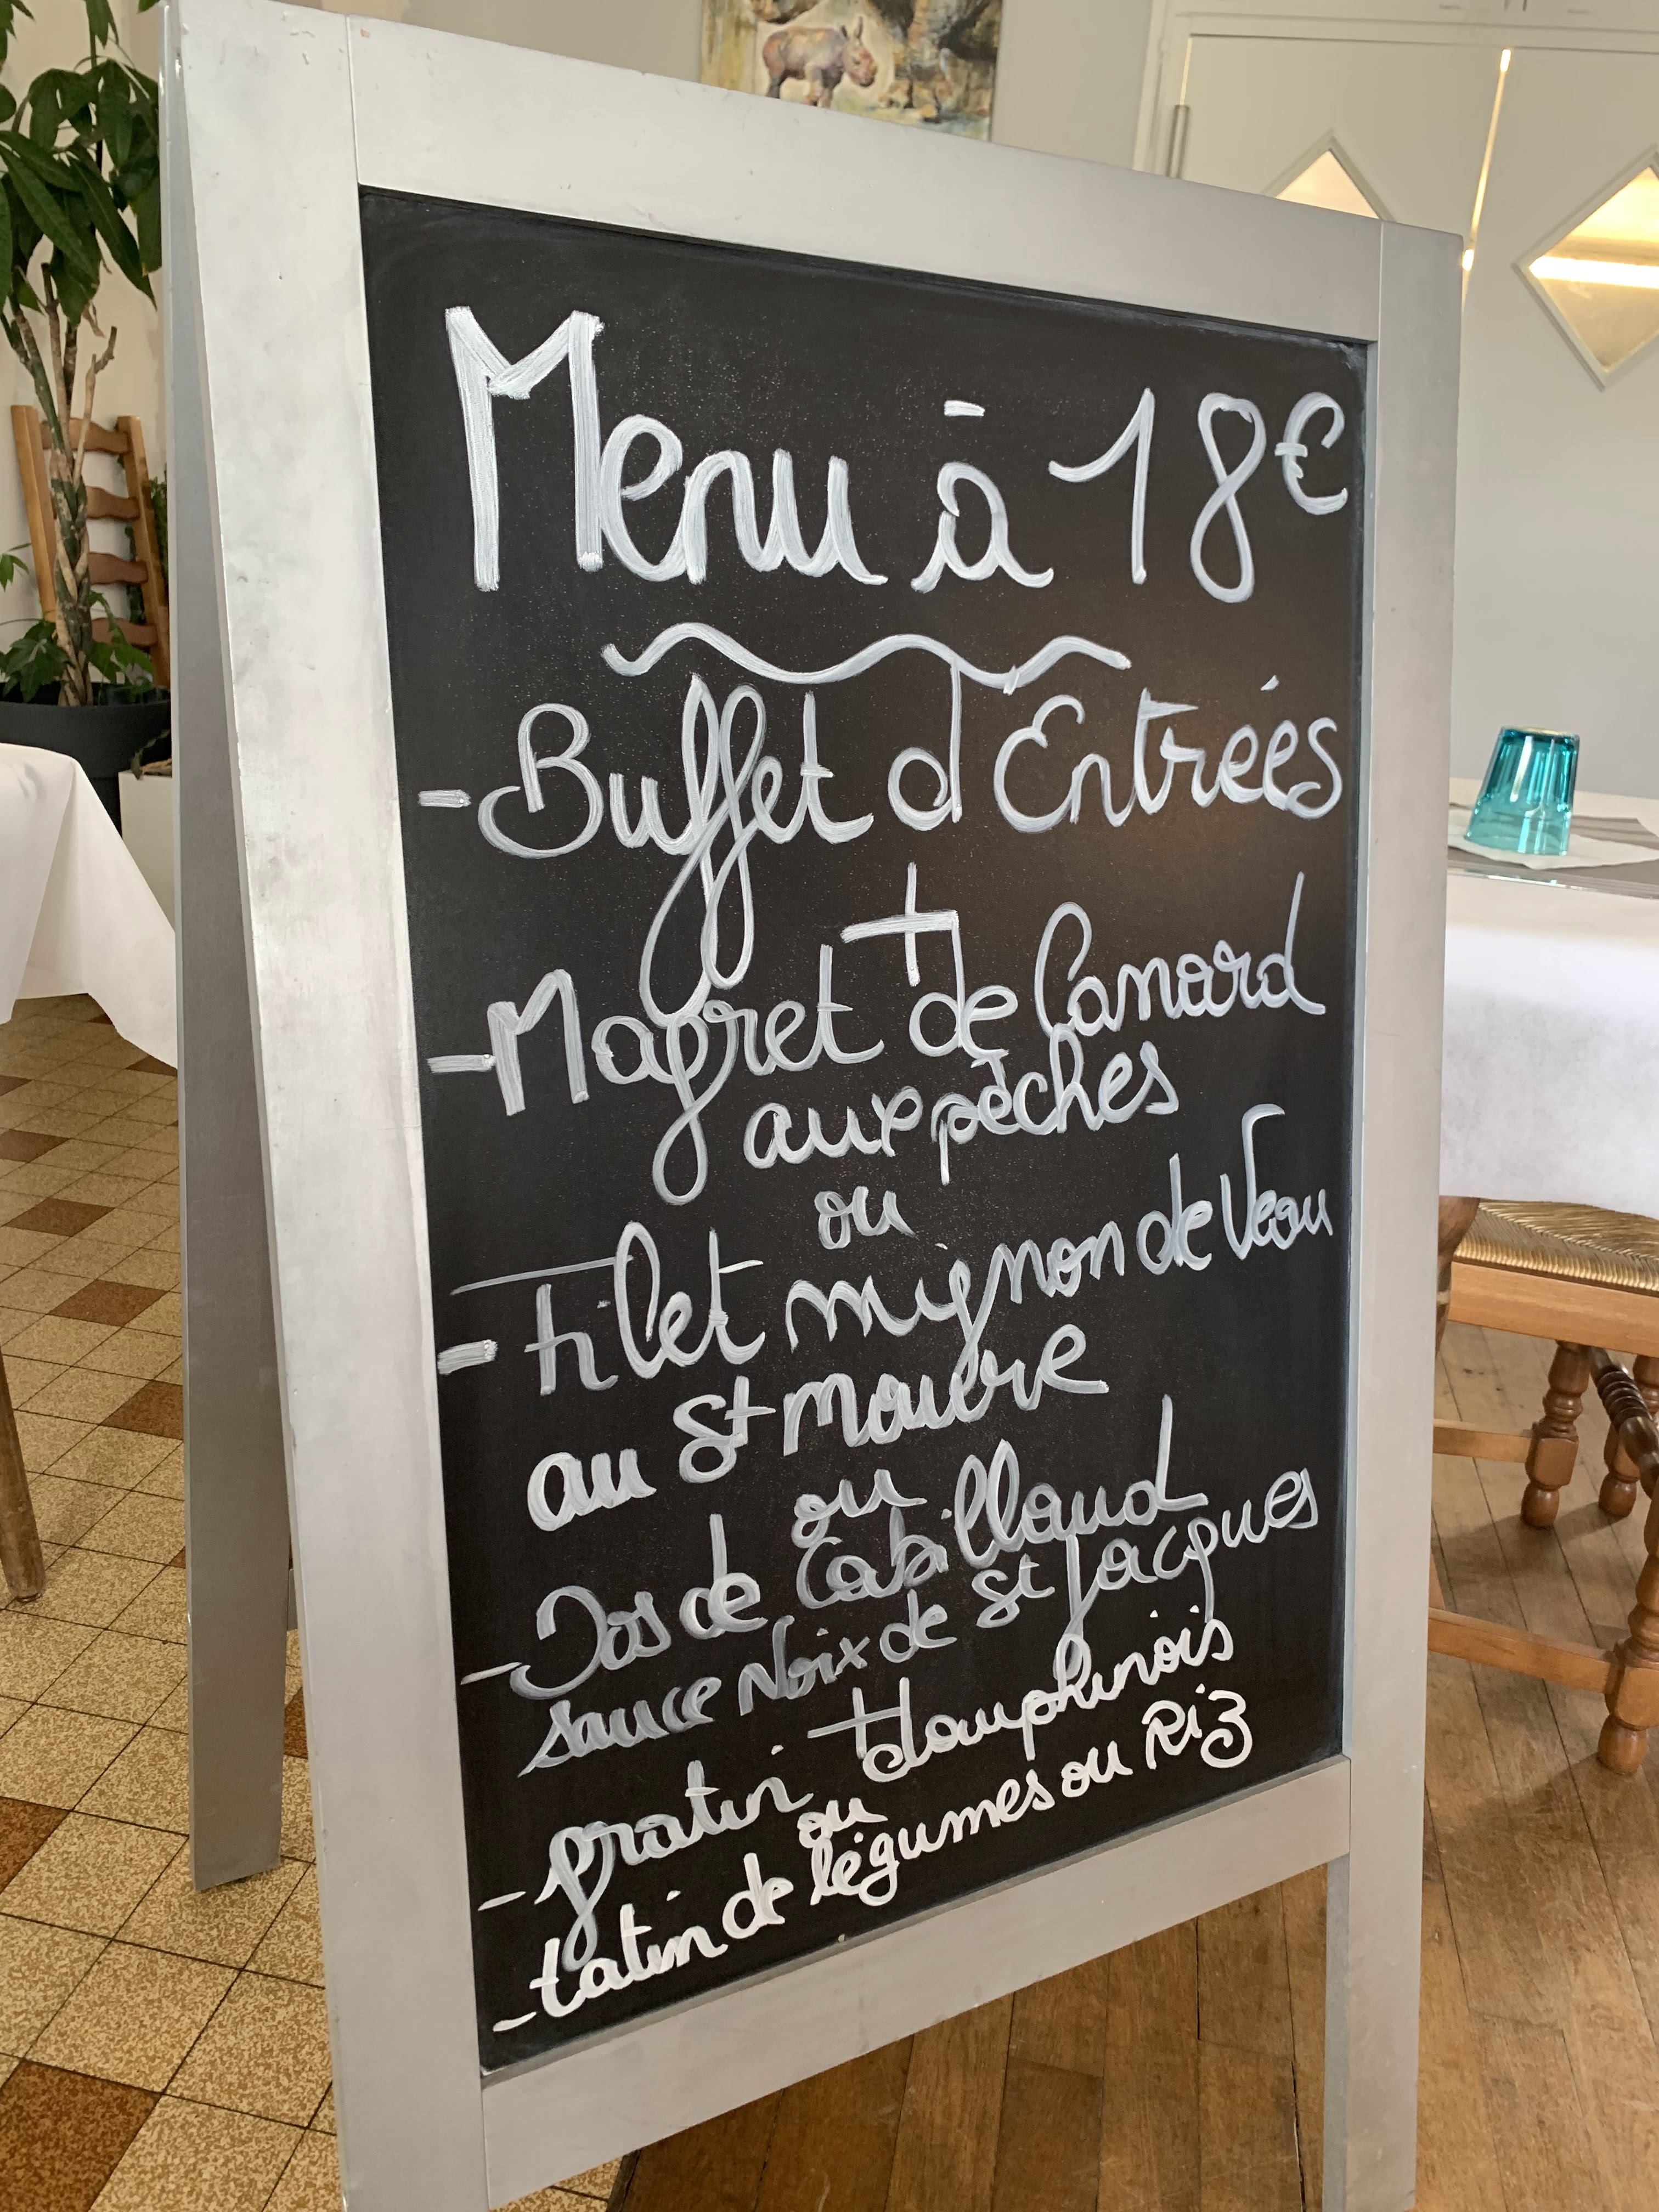 Menu à 18€
- Buffet d'Entrées
+
- Magret de Canard
aux pêches
ou
- Filet mignon de Veau
au St Maure
ou
- Dos de Cabillaud
sauce Noix de St Jacques
+
- gratin dauphinois
ou
- tatin de légumes ou Riz